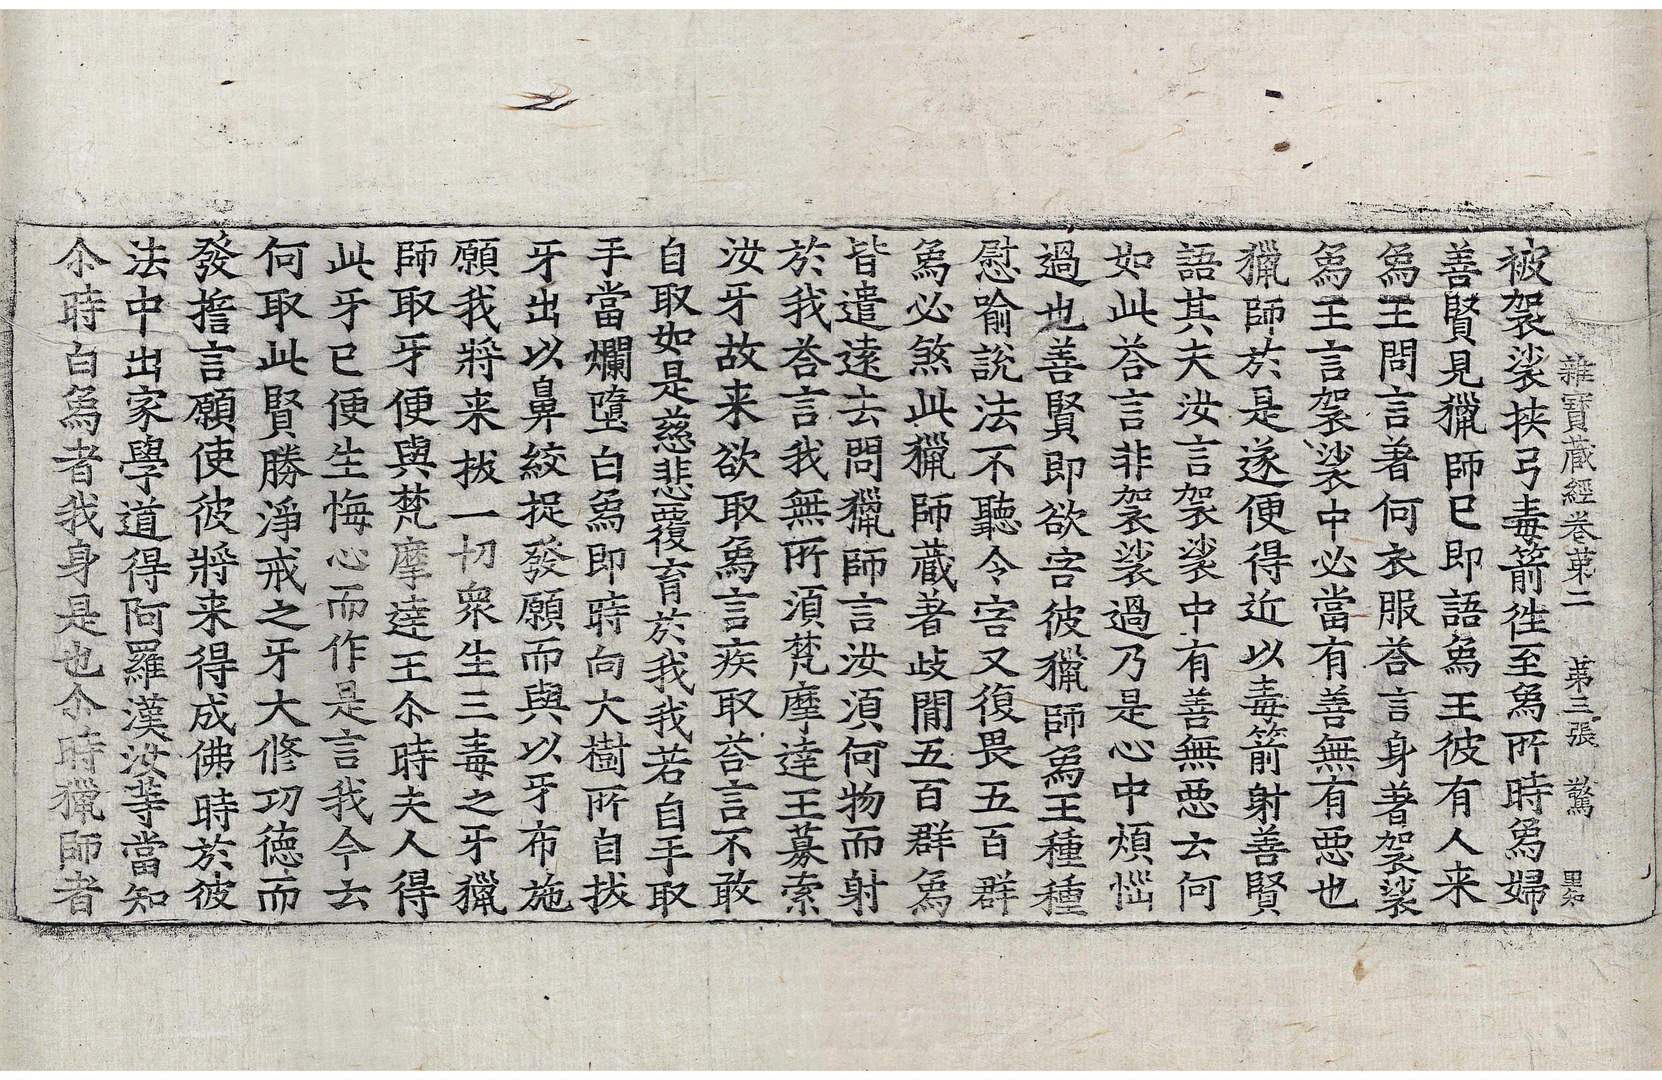 雜寶蔵經卷苐二 苐三張 驚 里知
被袈裟挟弓毒箭徃至爲所時爲婦
善賢見獵師已即語爲王彼有人来
爲王問言著何衣服荅言身著袈裟
爲王言袈裟中必當有善無有悪也
獵師於是遂便得近以毒箭射善賢
語其夫汝言袈裟中有善無悪云何
如此荅言非袈裟過乃是心中煩惱
過也善賢即欲害彼獵師爲王種種
慰喻說法不聽令害又復畏五百群
爲必煞此獵師蔵著歧間五百群爲
皆遣遠去問獵師言汝湏何物而射
於我荅言我無所湏梵摩達王募索
汝牙故来欲取爲言疾取荅言不敢
自取如是慈悲覆育於我我若自手取
手當爛墮白爲即時向大樹所自拔
牙出以鼻絞捉發願而與以牙布施
願我將来拔一切衆生三毒之牙獵
師取牙便與梵摩達王尒時夫人得
此牙已便生悔心而作是言我今云
何取此賢勝淨戒之牙大修功德而
發擔言願使彼將来得成佛時於彼
法中出家學道得阿羅漢汝等當知
尒時白爲者我身是也尒時獵師者